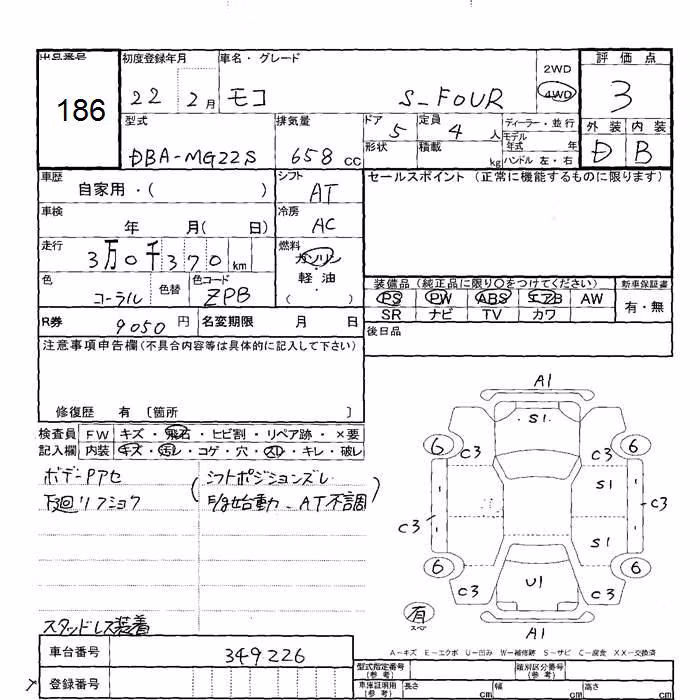 出品番号 初度登録年月 車名・グレード 2WD 評価点
186 22 2月 モコ S-FOUR 4WD 3
型式 排気量 ドア 5 定員 4人 ディーラー・並行 外装 内装
DBA-MG22S 658 CC 形状 積載 kg モデル年式 年 D B
ハンドル 左・右
車歴 自家用・( ) シフト AT セールスポイント (正常に機能するものに限ります)
車検 年 月( 日) 冷房 AC
走行 3万0千370km 燃料 ガソリン
軽油
( )
色 コーラル 色替 色コード ZPB
装備品 (純正品に限り○をつけてください) 新車保証書
PS PW ABS エアB AW 有・無
SR ナビ TV カワ
R券 9050円 名変期限 月 日 後日品
注意事項申告欄(不具合内容等は具体的に記入して下さい)
修復歴 有 〔箇所 〕
検査員 FW キズ・飛石・ヒビ割・リペア跡・×要
記入欄 内装 キズ・汚レ・コゲ・穴・スレ・キレ・破レ
ボデーPアセ (シフトポジションズレ
下廻リフショク 始動-AT不調)
スタッドレス装着
A1
S1
6 C3 C3 6
S1
C3 C3
S1
6 C3 U1 C3 6
有
スペア
A1
A-キズ E-エクボ U-凹み W-補修跡 S-サビ C-腐食 XX-交換済
車台番号 349226
登録番号
型式指定番号(参考) 類別区分番号(参考)
車庫証明用(参考) 長さ cm 幅 cm 高さ cm